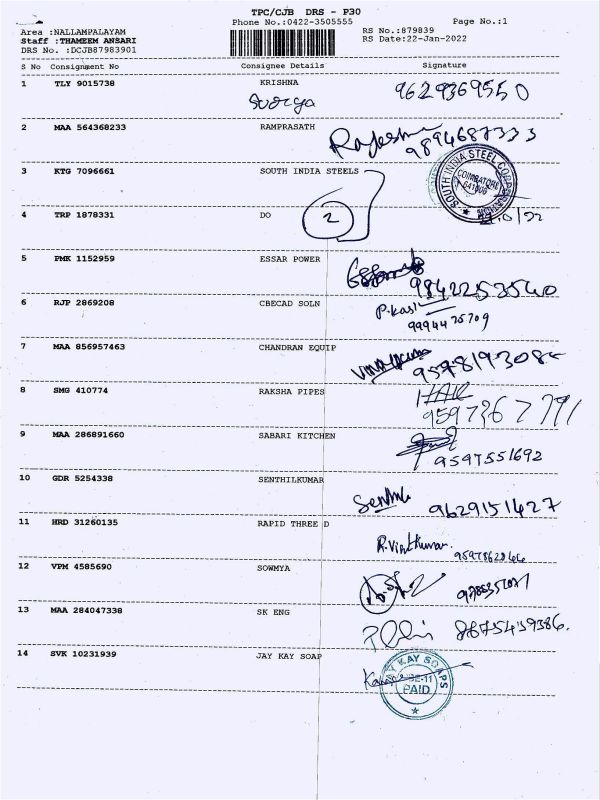 TPC/CJB DRS - P30
Phone No.:0422-3505555
Page No.:1
Area :NALLAMPALAYAM
Staff :THAMEEM ANSARI
DRS No. :DCJB87983901
RS No.:879839
RS Date:22-Jan-2022
S No Consignment No Consignee Details Signature
1 TLY 9015738 KRISHNA 9629369550
Surya
2 MAA 564368233 RAMPRASATH Rajesh 9894687333
3 KTG 7096661 SOUTH INDIA STEELS
SOUTH INDIA STEEL CORPORATION
COIMBATORE
641006
4 TRP 1878331 DO 2
5 PMK 1152959 ESSAR POWER 9842253540
6 RJP 2869208 CBECAD SOLN P.kasi
9994425709
7 MAA 856957463 CHANDRAN EQUIP
8 SMG 410774 RAKSHA PIPES
9597367791
9 MAA 286891660 SABARI KITCHEN 9597551692
10 GDR 5254338 SENTHILKUMAR Senthil 9629151427
11 HRD 31260135 RAPID THREE D R.Vinothkumar
12 VPM 4585690 SOWMYA
13 MAA 284047338 SK ENG 8675439386.
14 SVK 10231939 JAY KAY SOAP
JAY KAY SOAPS
CBE-11
PAID